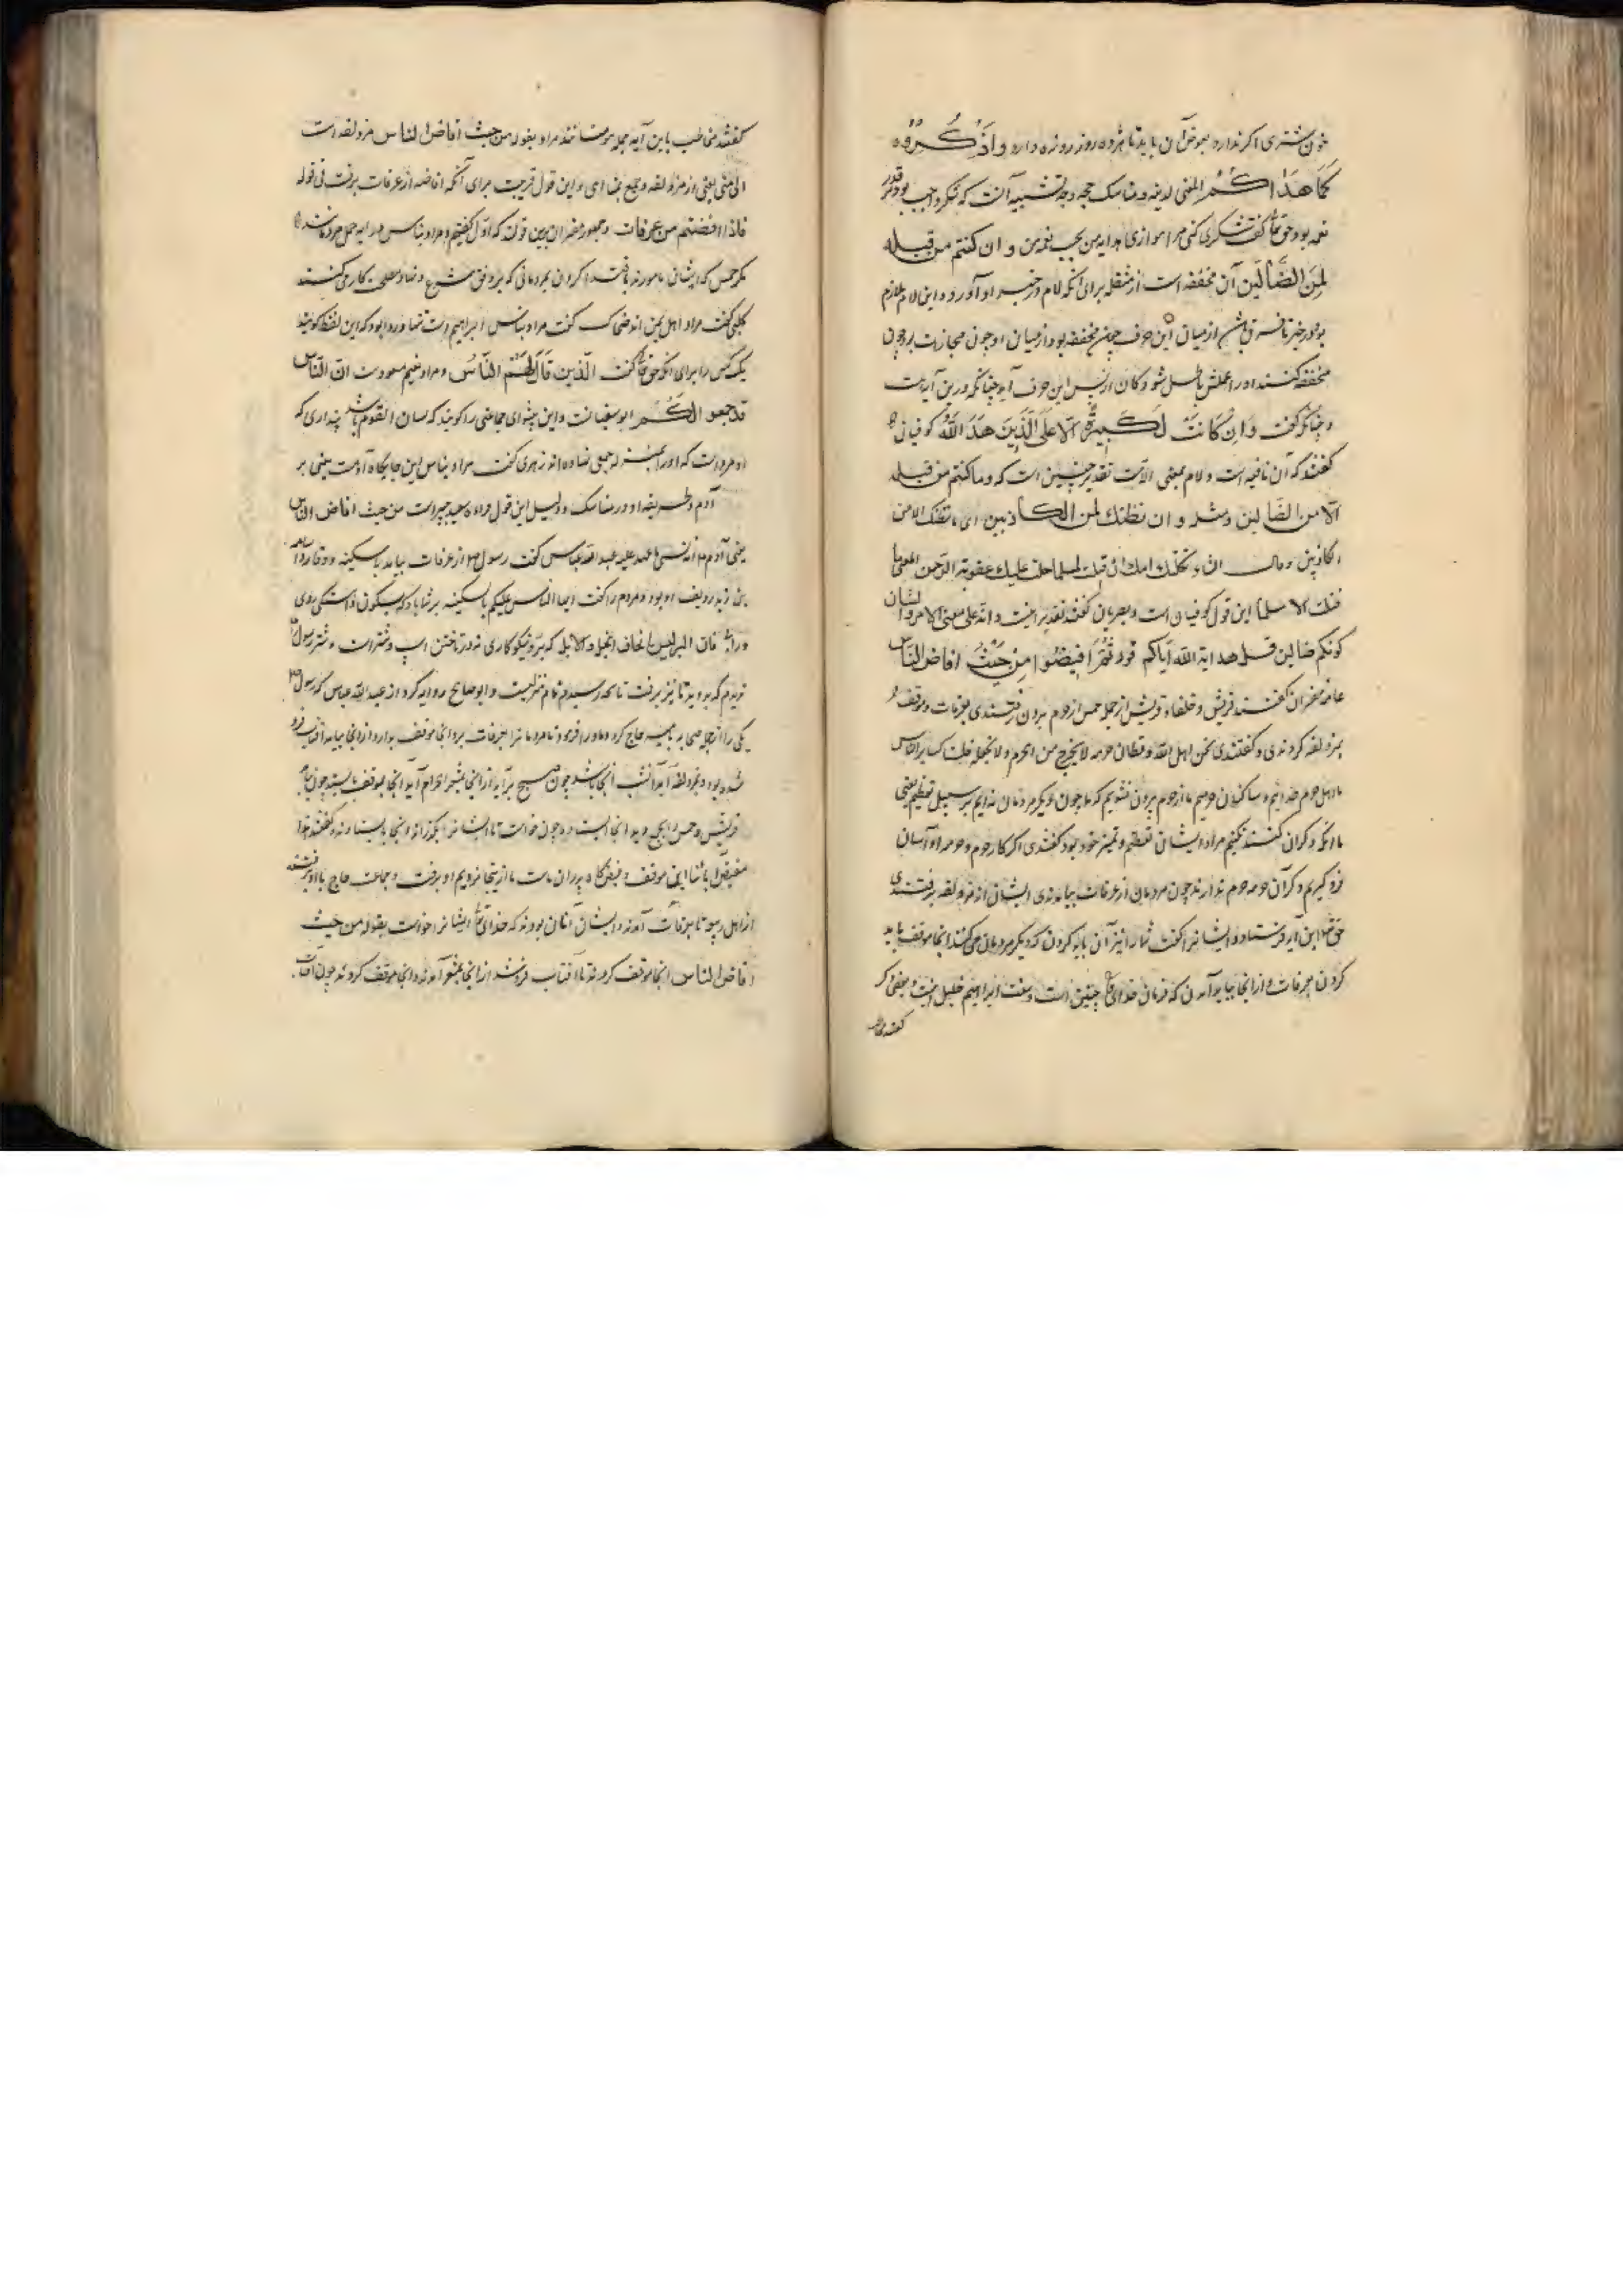 خون شتری اگر ندارد بعوض آن باید تا هژده روز روزه دارد وَاذْكُرُوهُ
كَمَا هَدَاكُمْ المعنی لدینه و مناسك حجه وجه تشبیه آنست که شکر واجب بود بر قدر
نعمه بود حق تعالی گفت شکری کنی مرا موازی هدایه من بحسب نعمه من و ان كنتم من قبله
لَمِنَ الضَّالِّينَ آن مخففه است از مثقله برای آنکه لام در خبر او آورد و این لام ملازم
بود در خبر تا فرق باشد از میان این حرف چون مخففه بود از میان او چون مجازات بود چون
مخففه کنند او را عملش باطل شود و کان از پس این حرف آید چنانکه درین آیتست
و چنانکه گفت وَاِن كَانَتْ لَكَبِيرَةً اِلّا عَلَى الَّذِينَ هَدَى اللَّهُ کوفیان
گفتند که آن نافیه است و لام بمعنی الاست تقدیر چنین است که و ما كنتم من قبله
الّا من الضالین و مثله و ان نظنك لمن الكاذبین ای ما نظنك الا من
الكاذبین و قال ثكلتك امك ان قتلت لمسلما حلت علیك عقوبة الرحمن المعنی ما
قتلت الا مسلما این قول کوفیان است و بصریان گفتند تقدیر اینست و انه علی معنی الامر و الشان
كونكم ضالین قبل هدایة الله ایاكم قوله ثُمَّ اَفِيضُوا مِنْ حَيْثُ افاض الناس
عامه مفسران گفتند قریش و حلفاء قریش از جمله حمس از حرم بیرون نرفتندی بعرفات و موقف
بمزدلفه کردندی و گفتندی نحن اهل الله و قطان حرمه لا نخرج من الحرم و لا نخلفه فلسنا كسایر الناس
ما اهل حرم خدائیم و ساکنان حرمیم ما از حرم بیرون نشویم که ما چون دیگر مردمان نه ایم بر سبیل تعظیم یعنی
ما آنکه دگران کنند نکنیم مراد ایشان تعظیم و تمییز خود بود گفتندی اگر کار حرم و حرمه او آسان
فرو گیریم دگران حرمه حرم ندارند چون مردمان از عرفات بیامدندی ایشان از مزدلفه برفتندی
حق تعالی این آیه فرستاد و ایشانرا گفت شما را نیز آن باید کردن که دیگر مردمان می کنند آنجا موقف باید
کردن بعرفات و از آنجا بباید آمدن که فرمان خدای تعالی چنین است و سنت ابراهیم خلیل اینست و بعضی دگر
گفتند مخاطب
گفتند مخاطب باین آیه جمله مؤمنانند مراد بقوله من حیث افاض الناس مزدلفه است
الی منی یعنی از مزدلفه و جمع بمنا آی و این قول قریبست برای آنکه افاضه از عرفات برفت فی قوله
فاذا افضتم من عرفات و جمهور مفسران برین قولند که اول گفتیم و مراد بناس در آیه جمله مردمانند
مگر حمس که ایشان مامورند باقتدا کردن بمردمانی که بر وفق شرع و نهاد مصلحت کار می کنند
کلبی گفت مراد اهل یمن اند ضحاک گفت مراد بناس ابراهیم است تنها و روا بود که این لفظ گویند
یک کس را برای آنکه حق تعالی گفت الَّذِينَ قَالَ لَهُمُ النَّاسُ و مراد نعیم مسعودست انّ النّاس
قد جمعوا لكم ابو سفیانست و این پیشوای جماعتی را گویند که لسان القوم باشد پنداری که
او مردیست که او را بمنزله جمعی نهاده اند زهری گفت مراد بناس این جایگاه آدمست یعنی بر
آدم و طریقه او در مناسک و دلیل این قول قراءة سعید جبیر است من حیث افاض الناس
یعنی آدم من انه نسی ما عهد الیه عبد الله عباس گفت رسول از عرفات بیامد با سکینه و وقار و اسامه
بن زید ردیف او بود و مردم را گفت ایها الناس علیکم بالسکینه بر شما باد که بسکون و آهستگی روی
فان البر لیس بایجاف الخیل و الابل که بر و نیکوکاری نه در تاختن اسپ و شتر است و شتر رسول
ندیدم که بدوید تا نیز برفت تا بجمع رسید قوله تمام نزلیست و ابو صالح روایه کرد از عبد الله عباس که رسول
یکی را از جمله صحابه امیر حاج کرد و او را فرمود تا مردمانرا بعرفات برد آنجا موقف بدارد و از آنجا بیاید آفتاب فرو
شده بود و بمزدلفه آید آنشب آنجا باشد چون صبح برآید از آنجا بمشعر الحرام آید آنجا بموقف بایستد چون بیامد
قریش و حمس را بجمع دید آنجا ایستاده چون خواست تا ایشانرا بگذراند آنجا بایستادند گفتند
مفیض آبائنا این موقف و مفیض گاه پدران ماست ما از اینجا نرویم او برفت و جماعت حاج با او برفتند
از اهل ربیعه تا بعرفات آمدند و ایشان آنان بودند که خدای تعالی ایشانرا خواست بقوله من حیث
افاض الناس آنجا موقف کردند تا آفتاب فروشد از آنجا بمشعر آمدند و آنجا موقف کردند چون آفتاب